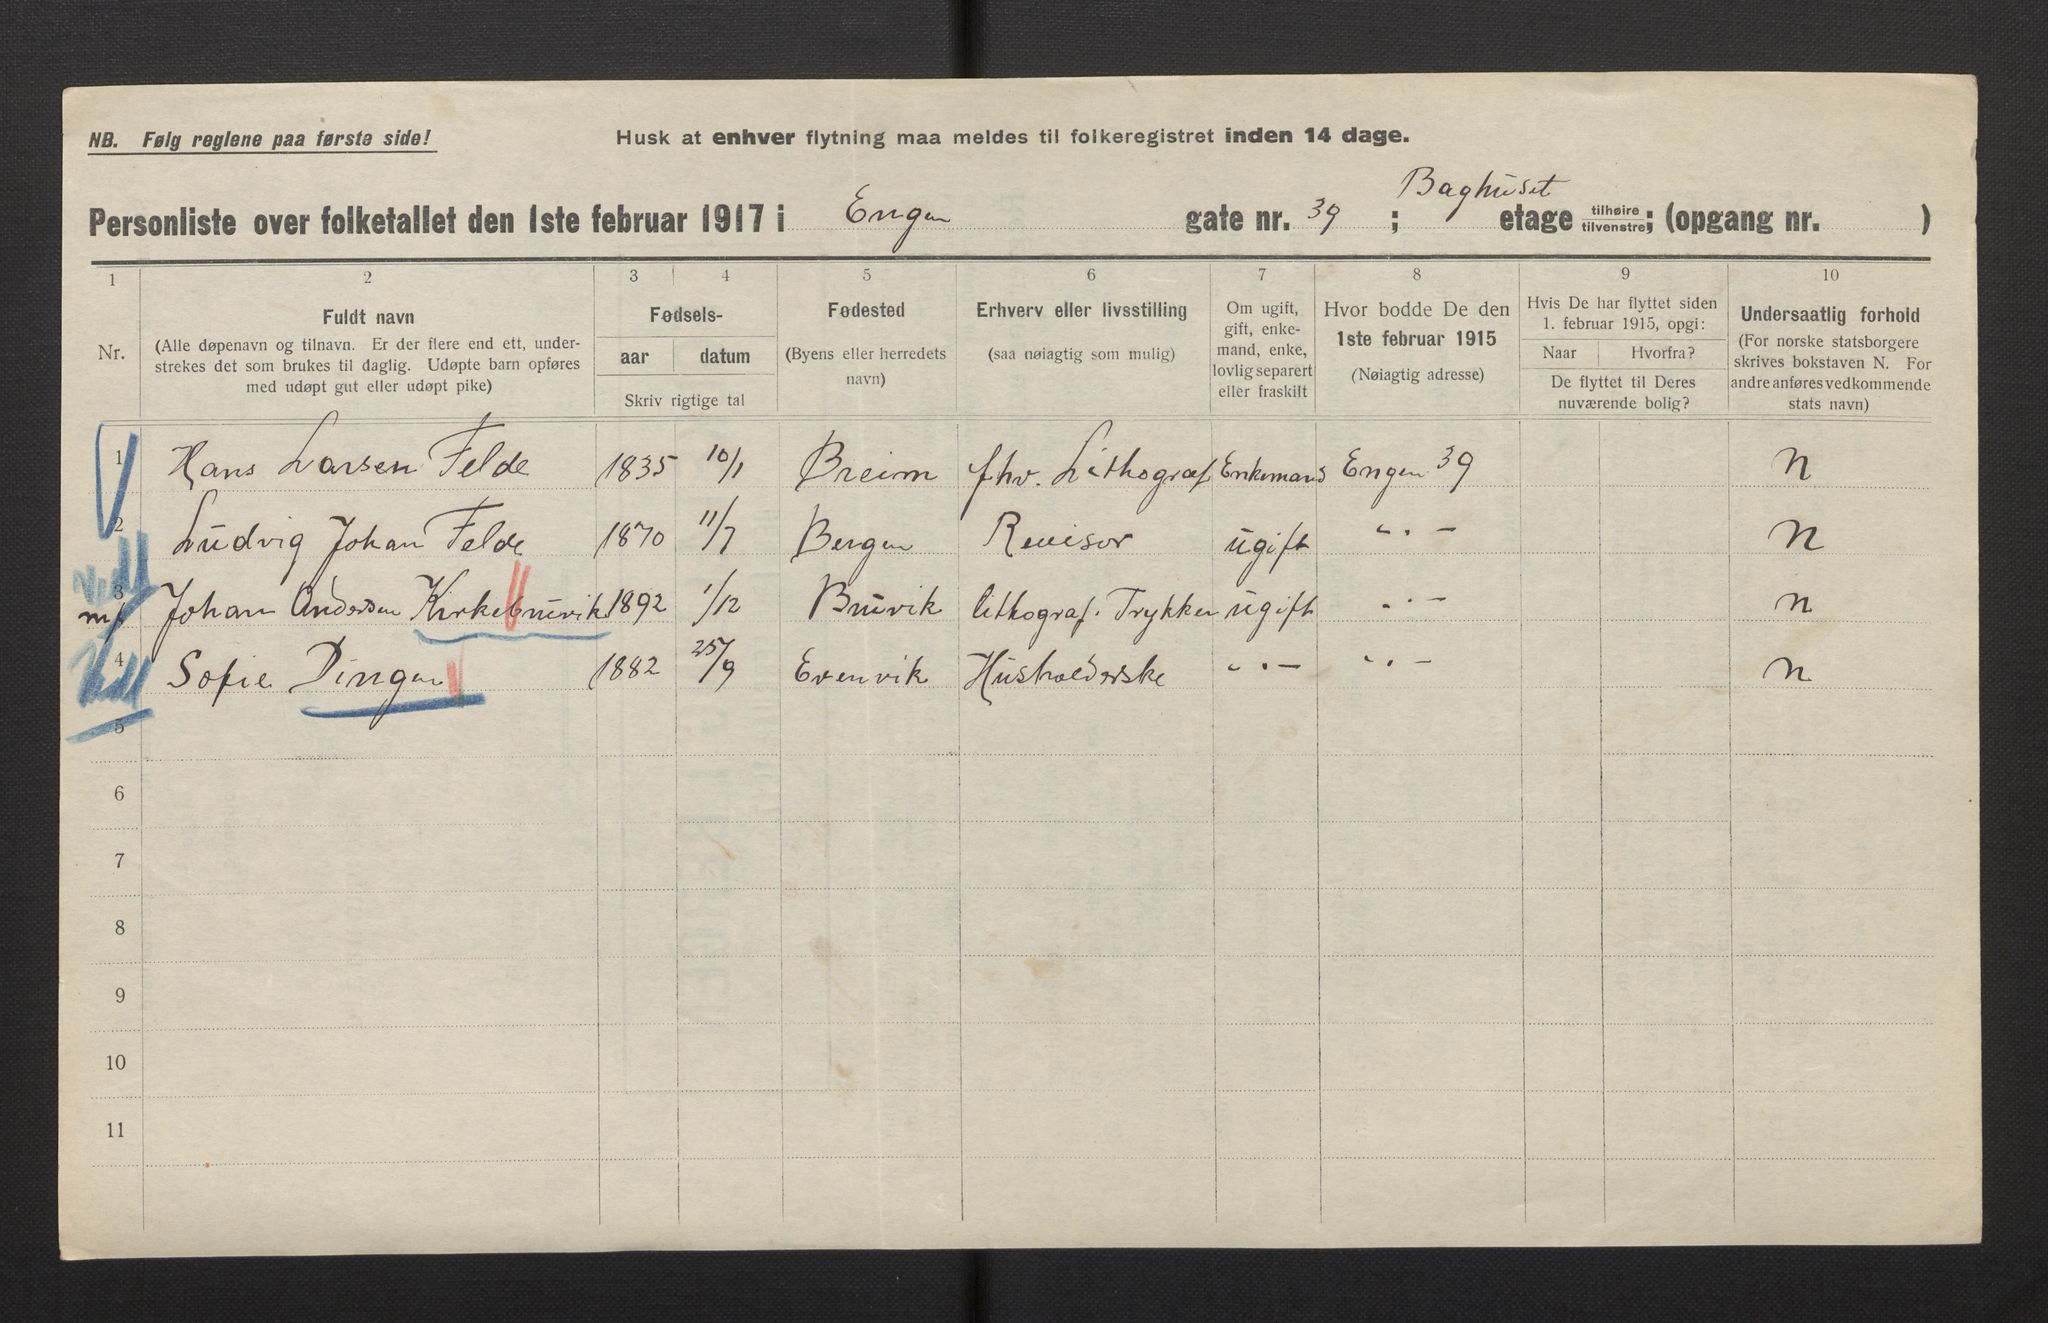 NB. Følg reglene paa første side!
Husk at enhver flytning maa meldes til folkeregistret inden 14 dage.
Baghuset
Personliste over folketallet den 1ste februar 1917 i Engen gate nr. 39 ; etage tilhøire tilvenstre ; (opgang nr. )
1 2 3 4 5 6 7 8 9 10
Nr.
Fuldt navn
(Alle døpenavn og tilnavn. Er der flere end ett, under-
strekes det som brukes til daglig. Udøpte barn opføres
med udøpt gut eller udøpt pike)
Fødsels-
aar datum
Skriv rigtige tal
Fødested
(Byens eller herredets
navn)
Erhverv eller livsstilling
(saa nøiagtig som mulig)
Om ugift,
gift, enke-
mand, enke,
lovlig separert
eller fraskilt
Hvor bodde De den
1ste februar 1915
(Nøiagtig adresse)
Hvis De har flyttet siden
1. februar 1915, opgi:
Naar Hvorfra?
De flyttet til Deres
nuværende bolig?
Undersaatlig forhold
(For norske statsborgere
skrives bokstaven N. For
andre anføres vedkommende
stats navn)
1 Hans Larsen Felde 1835 10/1 Breim fhv. Lithograf Enkemand Engen 39 N
2 Ludvig Johan Felde 1870 11/7 Bergen Revisor ugift " . - N
3 Johan Andersen Kirkebruvik 1892 1/12 Bruvik lithograf. Trykker ugift " . - N
4 Sofie Dingen 1882 25/9 Evenvik Husholderske " . - " . - N
5
6
7
8
9
10
11